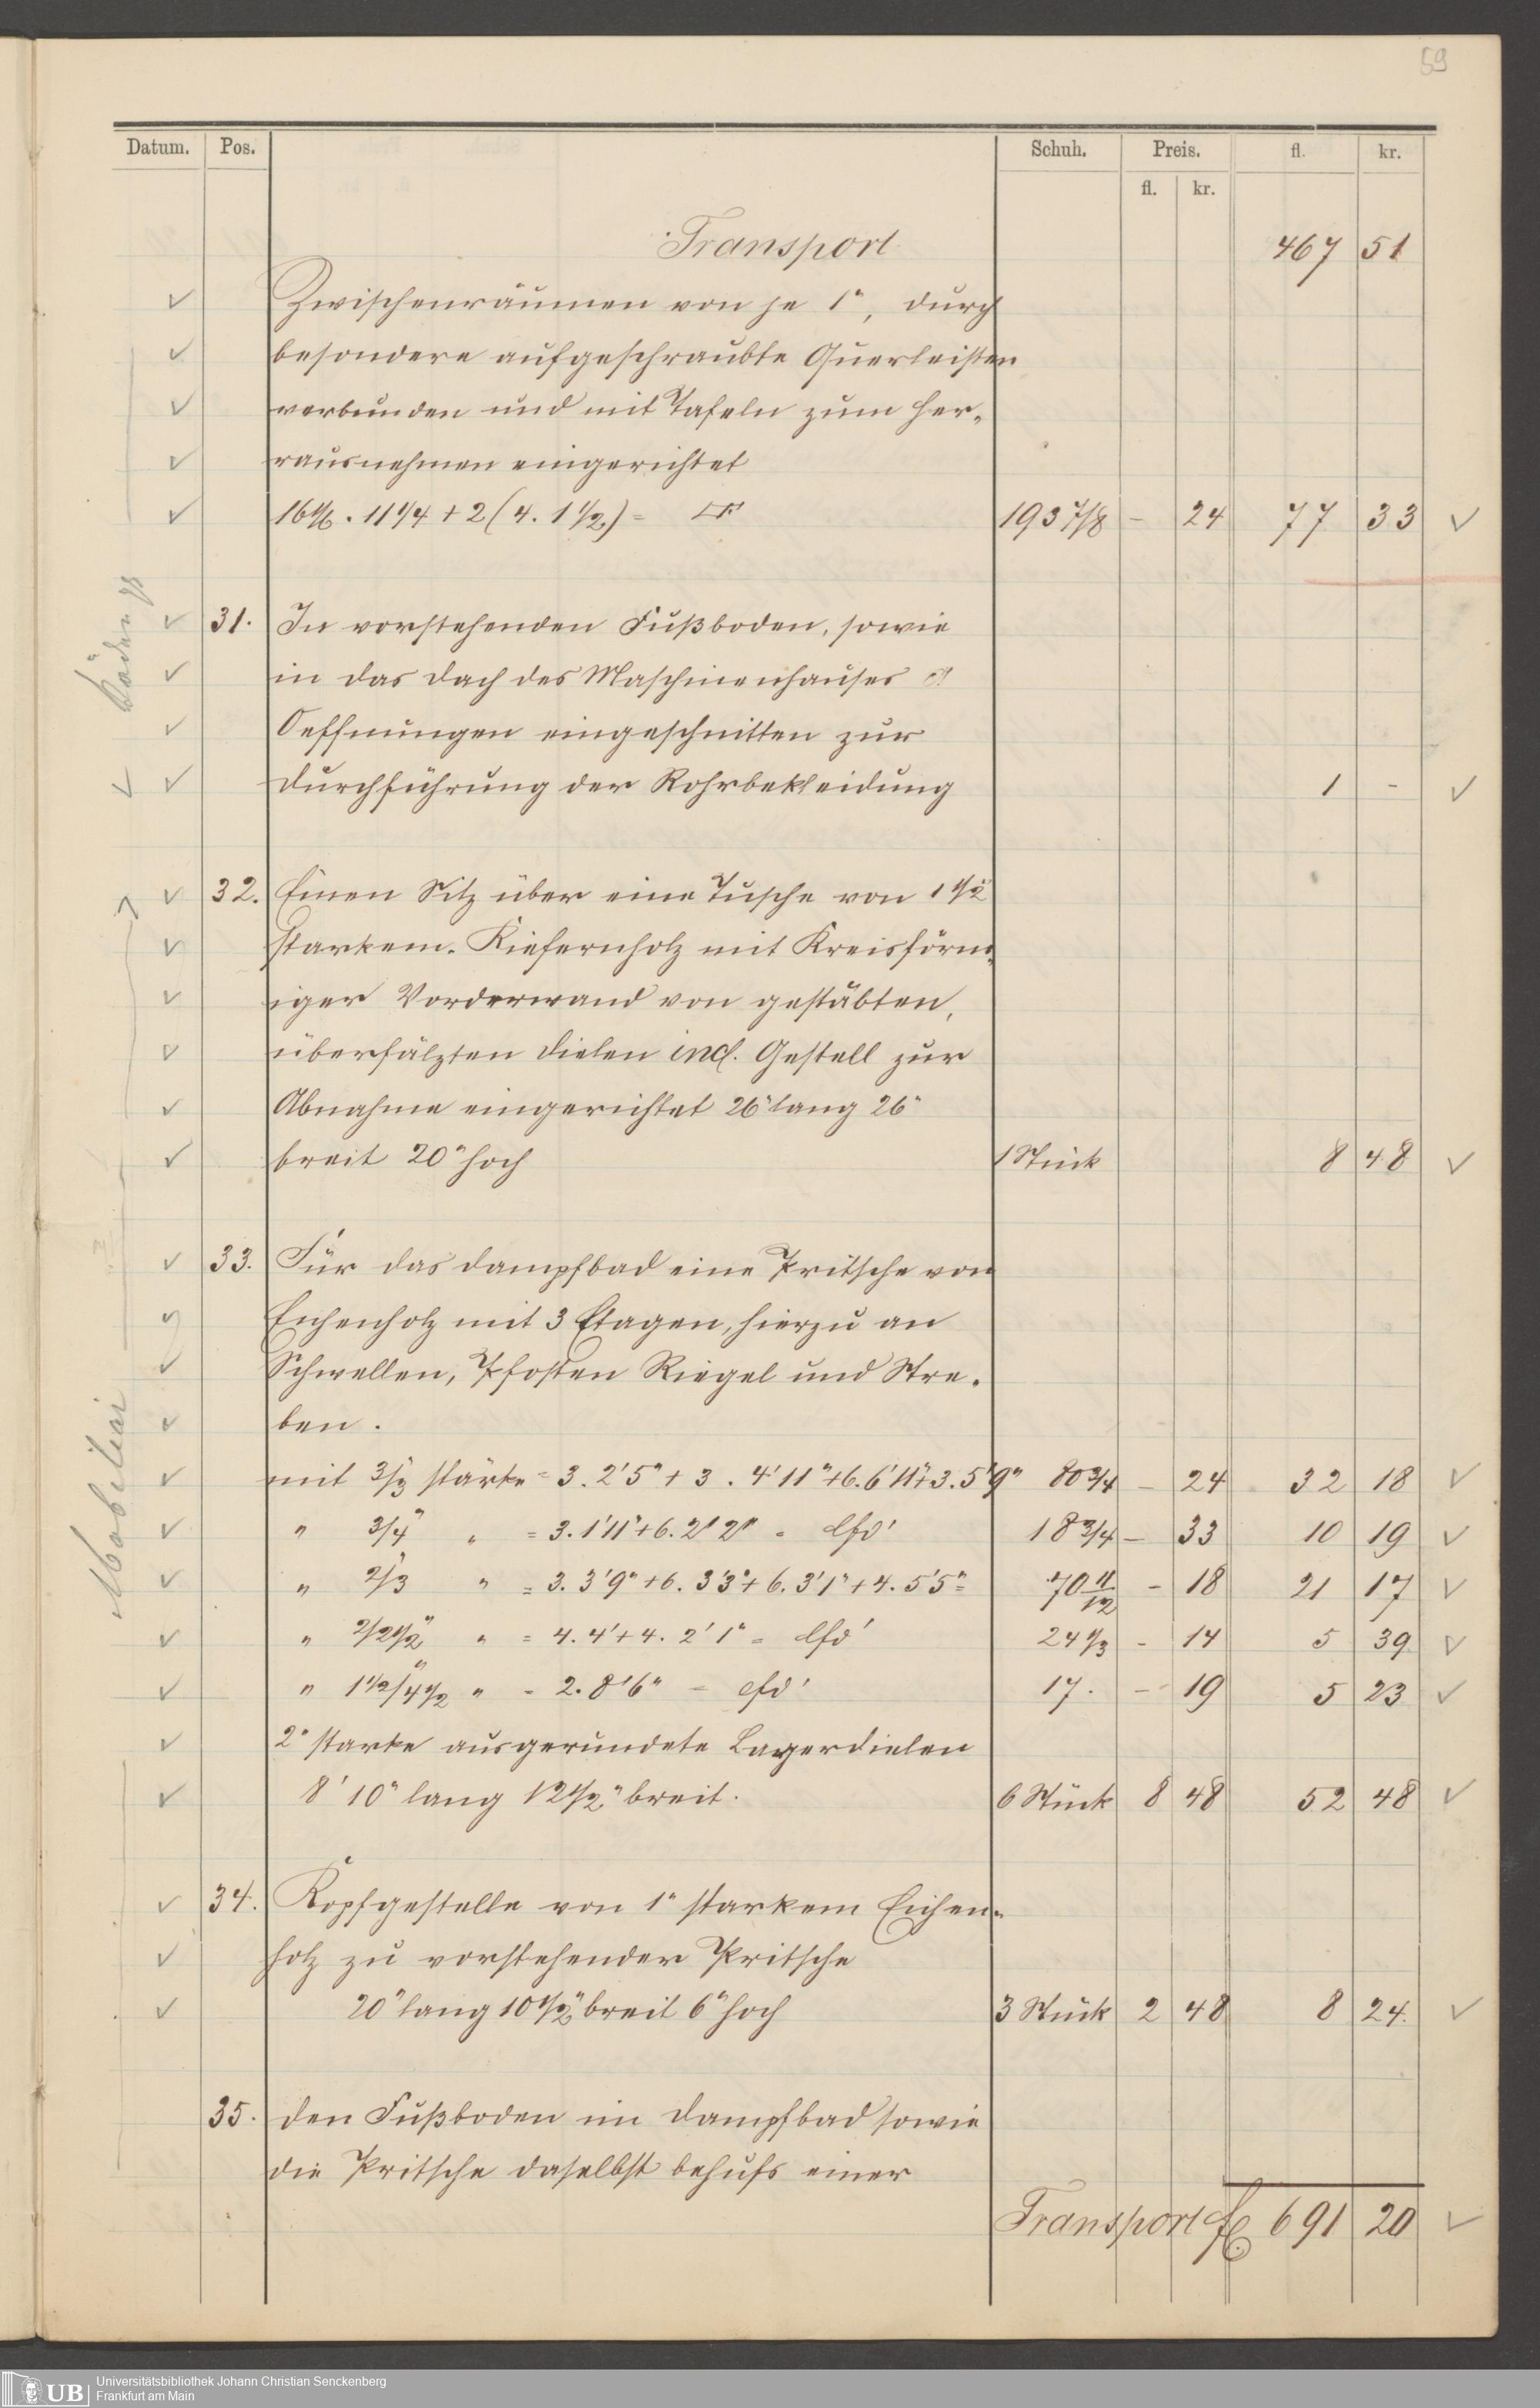 59
Datum. Pos. Schuh. Preis. fl. kr.
fl. kr.
Transport 467 51
Zwischenräumen von je 1", durch
besondere aufgeschraubte Querleisten
verbunden und mit Tafeln zum her-
rausnehmen eingerichtet
16 1/6 . 11 1/4 + 2 (4 . 1 1/2) = □' 193 7/8 - 24 77 33
31. In vorstehenden Fußboden, sowie
in das Dach des Maschinenhauses
Oeffnungen eingeschnitten zur
Durchführung der Rohrbekleidung 1 -
32. Einen Sitz über eine Dusche von 1 1/2"
starkem Kiefernholz mit Kreisförm-
iger Vorderwand von gestäbten,
überfälzten Dielen incl. Gestell zur
Abnahme eingerichtet 26" lang 26"
breit 20" hoch 1 Stück 8 48
33. Für das Dampfbad eine Pritsche von
Eichenholz mit 3 Etagen, hierzu an
Schwellen, Pfosten Riegel und Stre-
ben.
mit 3/3" stärke = 3 . 2'5" + 3 . 4'11" + 6 . 6'11" + 3 . 5'9" 80 3/4 - 24 32 18
" 3/4" " = 3 . 1'11" + 6 . 2' 2" = lfd' 18 3/4 - 33 10 19
" 2/3" " = 3 . 3'9" + 6 . 3'3" + 6 . 3'1" + 4 . 5'5" = 70 11/12 - 18 21 17
" 2/2 1/2" " = 4 . 4' + 4 . 2' 1" = lfd' 24 1/3 - 14 5 39
" 1 1/2/4 1/2" " = 2 . 8'6" = lfd' 17. - 19 5 23
2" starke ausgerundete Lagerdielen
8' 10" lang 12 1/2" breit. 6 Stück 8 48 52 48
34. Kopfgestelle von 1" starkem Eichen-
holz zu vorstehender Pritsche
20" lang 10 1/2" breit 6" hoch 3 Stück 2 48 8 24.
35. Den Fußboden im Dampfbad sowie
die Pritsche daselbst behufs einer
Transport fl. 691 20
Böden
Mobiliar
UB Universitätsbibliothek Johann Christian Senckenberg
Frankfurt am Main